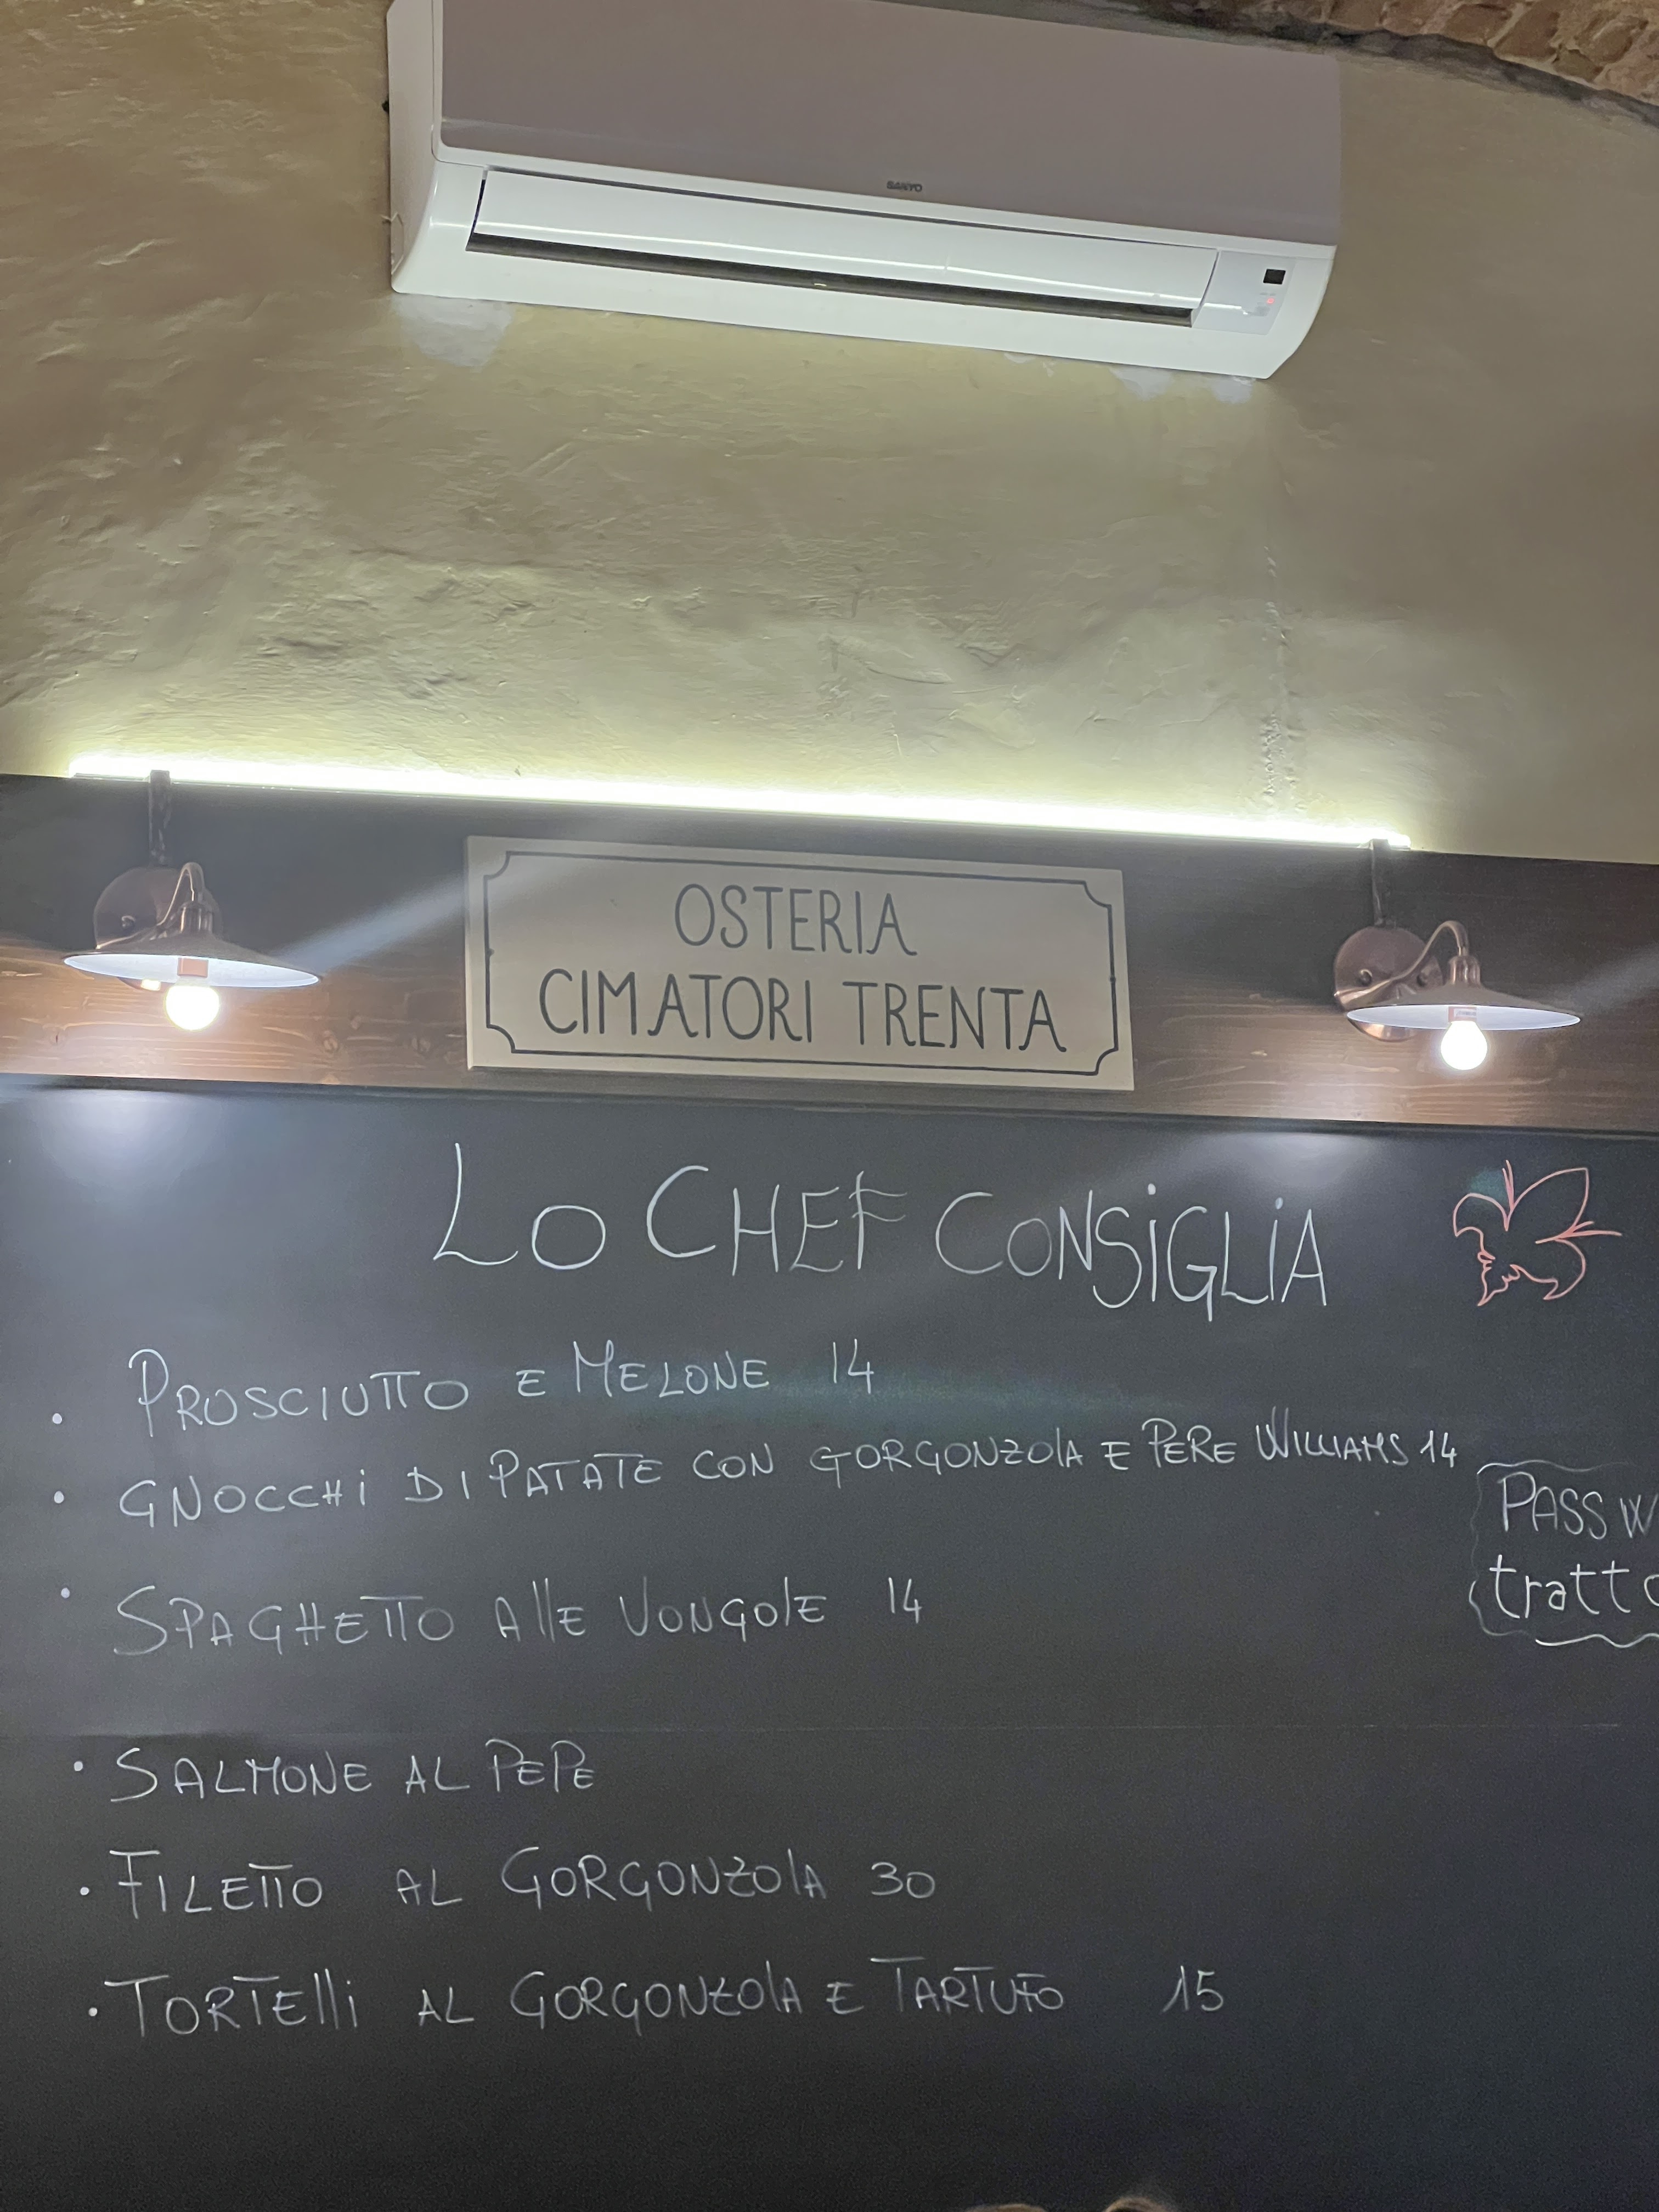 SANYO
OSTERIA
CIMATORI TRENTA
LO CHEF CONSIGLIA
• PROSCIUTTO E MELONE 14
• GNOCCHI DI PATATE CON GORGONZOLA E PERE WILLIAMS 14
PASSW
tratto
• SPAGHETTO ALLE VONGOLE 14
• SALMONE AL PEPE
• FILETTO AL GORGONZOLA 30
• TORTELLI AL GORGONZOLA E TARTUFO 15